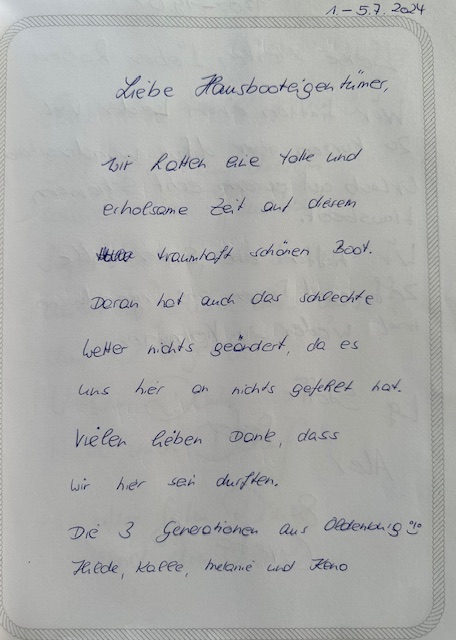 1. - 5.7. 2024
Liebe Hausbooteigentümer,
wir hatten eine tolle und
erholsame Zeit auf diesem
traumhaft schönen Boot.
Daran hat auch das schlechte
Wetter nichts geändert, da es
uns hier an nichts gefehlt hat.
Vielen lieben Dank, dass
wir hier sein durften.
Die 3 Generationen aus Oldenburg
Hilde, Kalle, Melanie und Keno